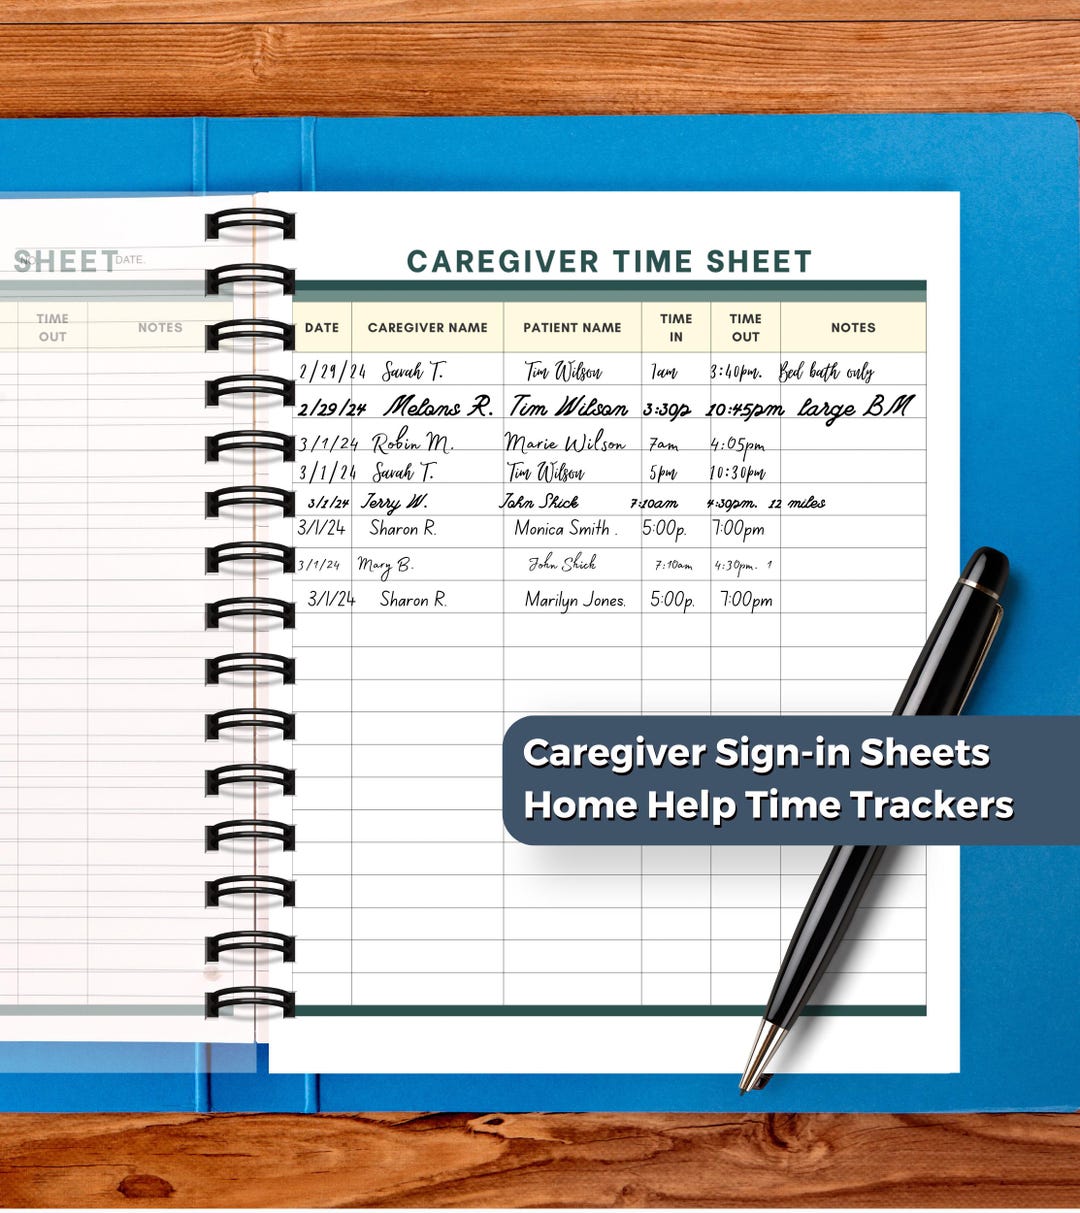 SHEET
NO.
DATE.
TIME OUT NOTES
CAREGIVER TIME SHEET
DATE CAREGIVER NAME PATIENT NAME TIME IN TIME OUT NOTES
2/29/24 Sarah T. Tim Wilson 7am 3:40pm. Bed bath only
2/29/24 Melans R. Tim Wilson 3:30p 10:45pm large BM
3/1/24 Robin M. Marie Wilson 7am 4:05pm
3/1/24 Sarah T. Tim Wilson 5pm 10:30pm
3/1/24 Jerry W. John Shick 7:10am 4:30pm. 12 miles
3/1/24 Sharon R. Monica Smith . 5:00p. 7:00pm
3/1/24 Mary B. John Shick 7:10am 4:30pm. 1
3/1/24 Sharon R. Marilyn Jones. 5:00p. 7:00pm
Caregiver Sign-in Sheets
Home Help Time Trackers